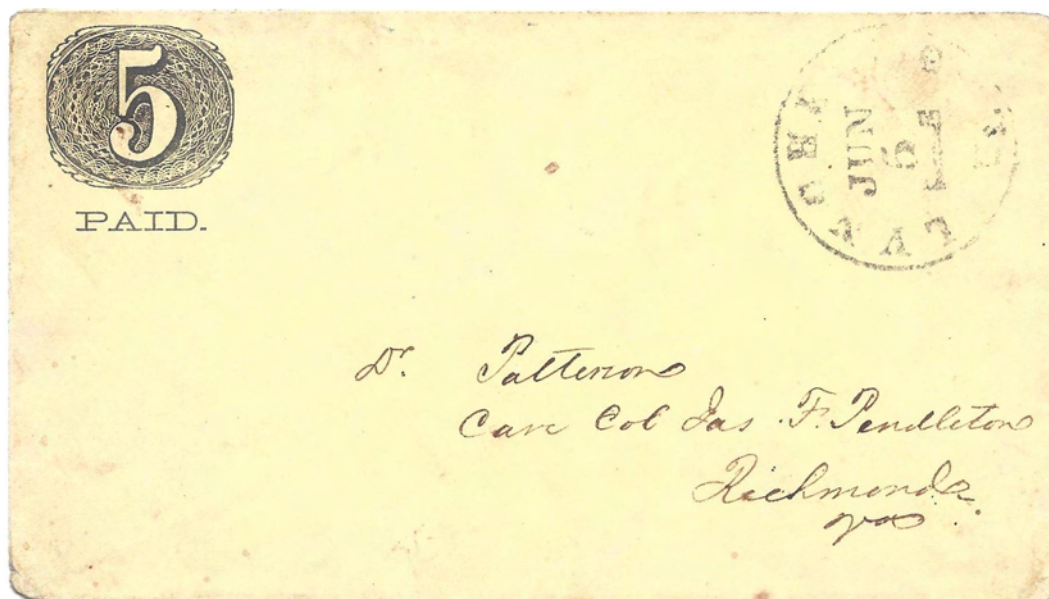 5
PAID.
LYNCHB
JUN
5
Dr. Patterson
Care Col Jas. F. Pendleton
Richmond
Va.